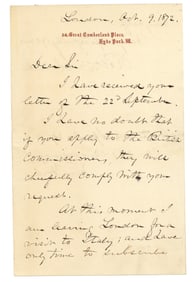 London, Oct. 9. 1872.
34. Great Cumberland Place.
Hyde Park. W.
Dear Sir
I have received your
letter of the 22d September.
I have no doubt that
if you apply to the British
Commissioners, they will
chefully comply with your
request.
At this moment I
am leaving London for a
visit to Italy; and have
only time to subscribe